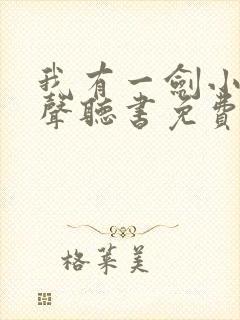 我有一劍小
聲聽書免費
格萊美